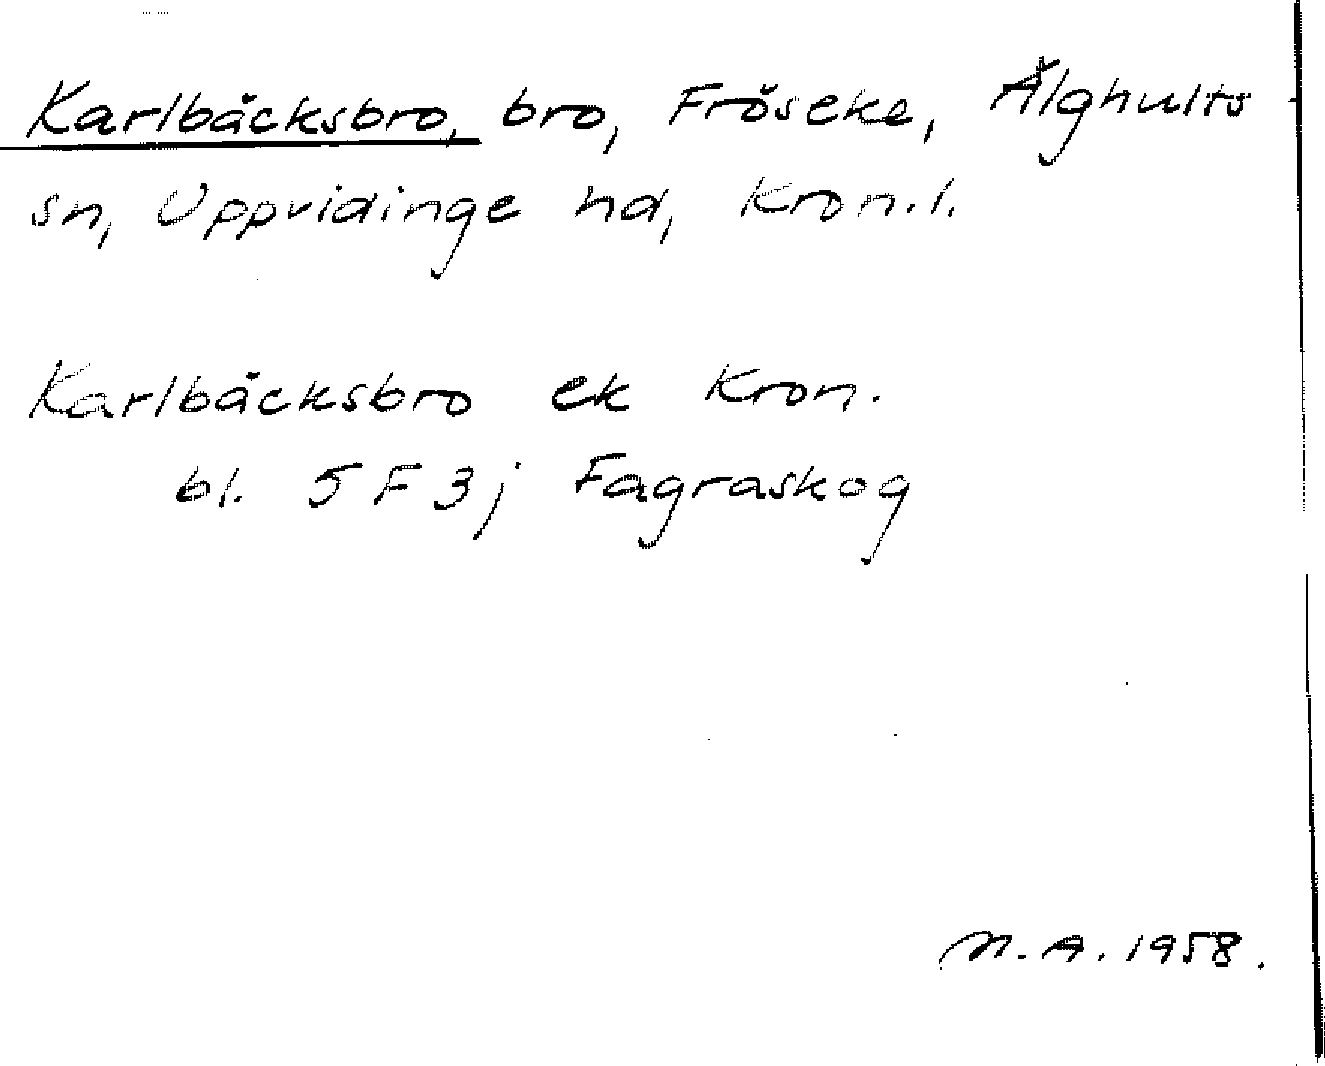 Karlbäcksbro, bro, Fröseke, Älghults
sn, Uppvidinge hd, Kron.l.
Karlbäcksbro ek Kron.
bl. 5F3j Fagraskog
N.A. 1958.